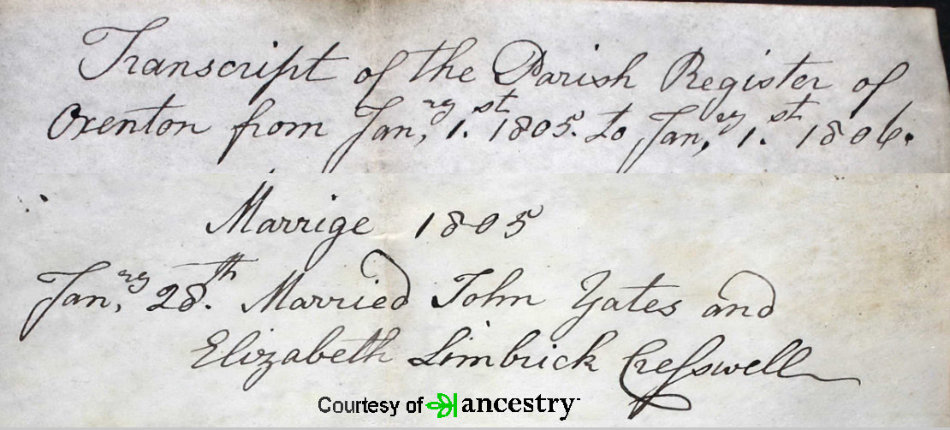 Transcript of the Parish Register of
Oxenton from Janry 1st 1805. to Janry 1st 1806.
Marrige 1805
Janry 28th Married John Yates and
Elizabeth Limbrick Creſswell
Courtesy of ancestry